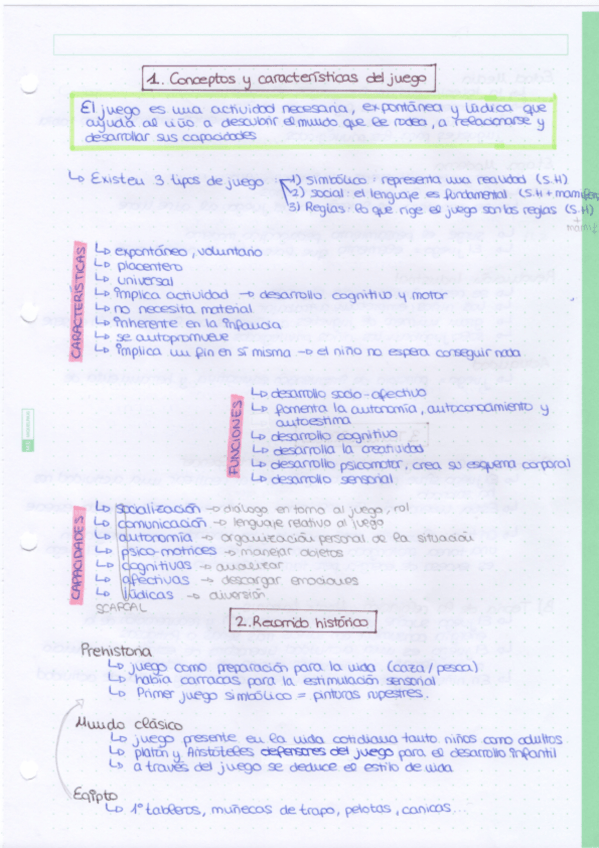 1. Conceptos y características del juego
El juego es una actividad necesaria, expontánea y lúdica que
ayuda al niño a descubrir el mundo que le rodea, a relacionarse y
desarrollar sus capacidades
↳ Existen 3 tipos de juego
1) Simbólico: representa una realidad (S.H)
2) Social: el lenguaje es fundamental (S.H + mamífer
3) Reglas: lo que rige el juego son las reglas (S.H)
+
mamíf
CARACTERÍSTICAS
↳ expontáneo, voluntario
↳ placentero
↳ universal
↳ implica actividad → desarrollo cognitivo y motor
↳ no necesita material
↳ inherente en la infancia
↳ se autopromueve
↳ implica un fin en sí misma → el niño no espera conseguir nada
FUNCIONES
↳ desarrollo socio-afectivo
↳ fomenta la autonomía, autoconocimiento y
autoestima
↳ desarrollo cognitivo
↳ desarrolla la creatividad
↳ desarrollo psicomotor, crea su esquema corporal
↳ desarrollo sensorial
CAPACIDADES
↳ socialización → diálogo en torno al juego, rol
↳ comunicación → lenguaje relativo al juego
↳ autonomía → organización personal de la situación
↳ psico-motrices → manejar objetos
↳ cognitivas → analizar
↳ afectivas → descargar emociones
↳ lúdicas → diversión
SCAPCAL
2. Recorrido histórico
Prehistoria
↳ juego como preparación para la vida (caza/pesca)
↳ había carracas para la estimulación sensorial
↳ Primer juego simbólico = pinturas rupestres.
Mundo clásico
↳ juego presente en la vida cotidiana tanto niños como adultos
↳ platón y Aristóteles defensores del juego para el desarrollo infantil
↳ a través del juego se deduce el estilo de vida
Egipto
↳ 1º tableros, muñecas de trapo, pelotas, canicas...